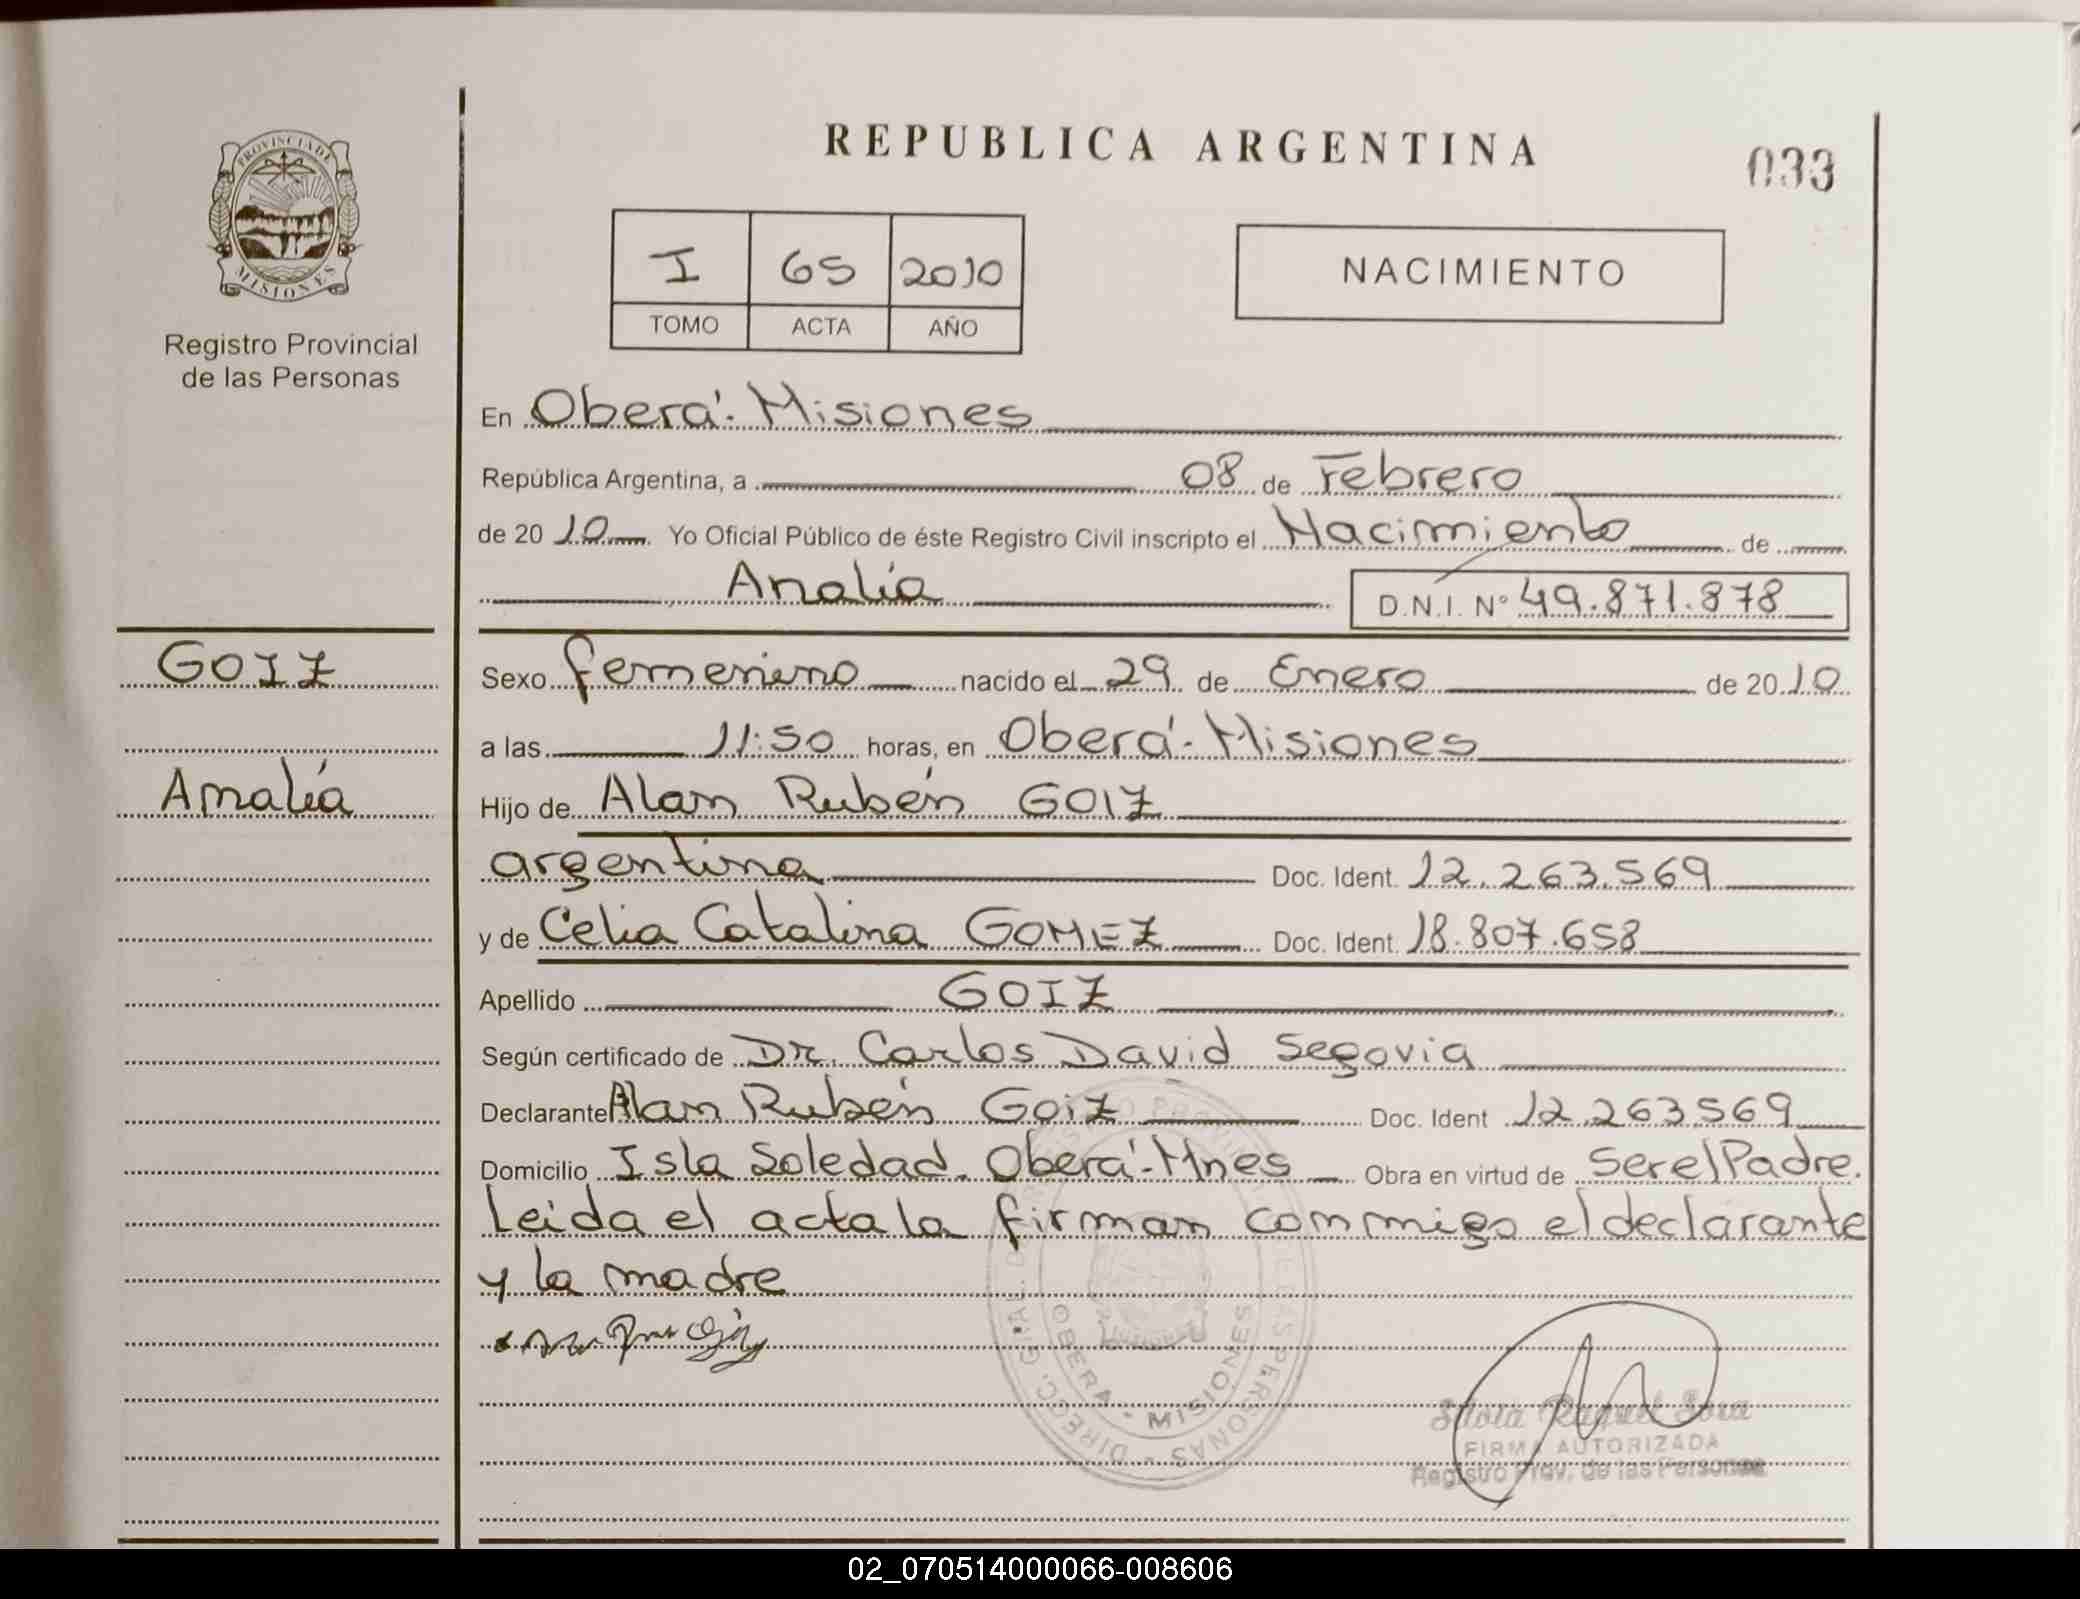 REPUBLICA ARGENTINA
033
PROVINCIA DE
MISIONES
Registro Provincial
de las Personas
I 65 2010
TOMO ACTA AÑO
NACIMIENTO
En Oberá - Misiones
República Argentina, a 08 de Febrero
de 2010. Yo Oficial Público de éste Registro Civil inscripto el Nacimiento de
Analía D.N.I. Nº 49.871.878
GOIZ
Analía
Sexo femenino nacido el 29 de Enero de 2010
a las 11:50 horas, en Oberá - Misiones
Hijo de Alan Rubén GOIZ
argentina Doc. Ident. 12.263.569
y de Celia Catalina GOMEZ Doc. Ident. 18.807.658
Apellido GOIZ
Según certificado de Dr. Carlos David Segovia
Declarante Alan Rubén Goiz Doc. Ident 12.263.569
Domicilio Isla Soledad. Oberá - Mnes Obra en virtud de Ser el Padre.
Leida el acta la firman conmigo el declarante
y la madre
OBERA - MISIONES
Silvia Raquel Sosa
FIRMA AUTORIZADA
Registro Prov. de las Personas
02_070514000066-008606